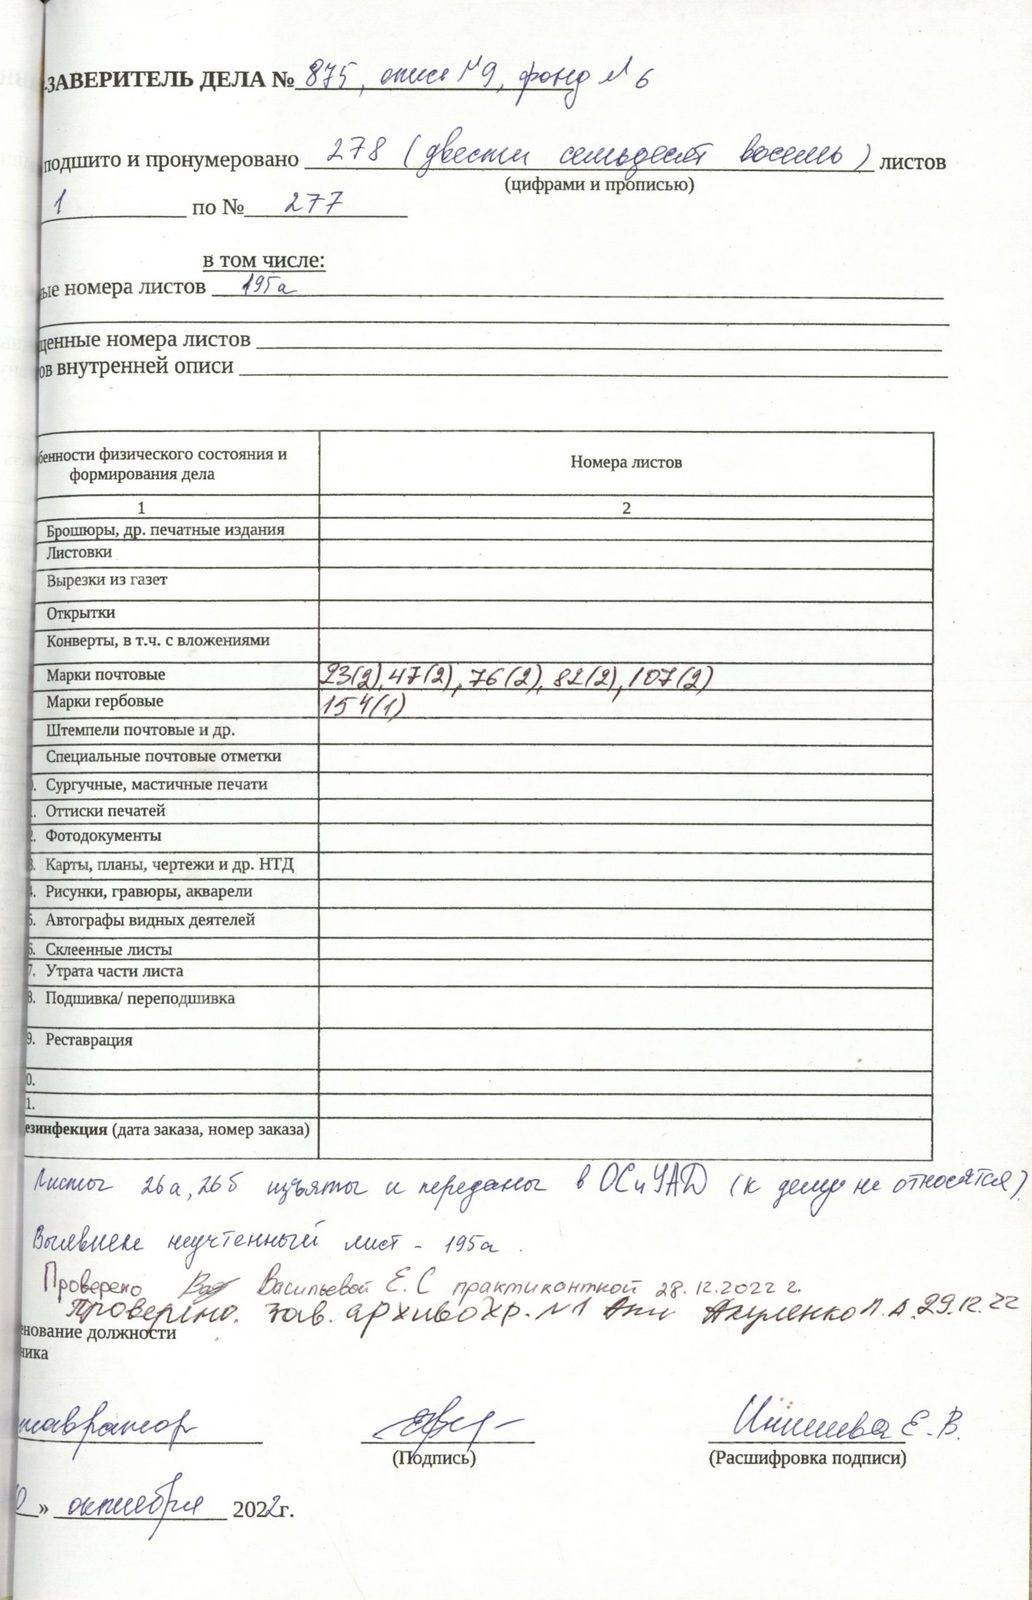 -ЗАВЕРИТЕЛЬ ДЕЛА № 875, опись № 9, фонд № 6
подшито и пронумеровано 278 (двести семьдесят восемь) листов
(цифрами и прописью)
1 по № 277
в том числе:
ые номера листов 195а
щенные номера листов
ов внутренней описи
бенности физического состояния и формирования дела
Номера листов
1
2
Брошюры, др. печатные издания
Листовки
Вырезки из газет
Открытки
Конверты, в т.ч. с вложениями
Марки почтовые 23(2), 47(2), 76(2), 82(2), 107(2)
Марки гербовые 154(1)
Штемпели почтовые и др.
Специальные почтовые отметки
0. Сургучные, мастичные печати
1. Оттиски печатей
2. Фотодокументы
3. Карты, планы, чертежи и др. НТД
4. Рисунки, гравюры, акварели
5. Автографы видных деятелей
6. Склеенные листы
7. Утрата части листа
8. Подшивка/ переподшивка
9. Реставрация
0.
1.
езинфекция (дата заказа, номер заказа)
Листы 26а, 26б изъяты и переданы в ОСиУАД (к делу не относятся).
Выявлен неучтенный лист - 195а.
Проверено Васильевой Е.С практиканткой 28.12.2022 г.
Проверено. Зав. архивохр. №1 Акуленко Л.А. 29.12.22
енование должности
ника
тавратор
(Подпись)
Е.В.
(Расшифровка подписи)
0 » октября 2022г.